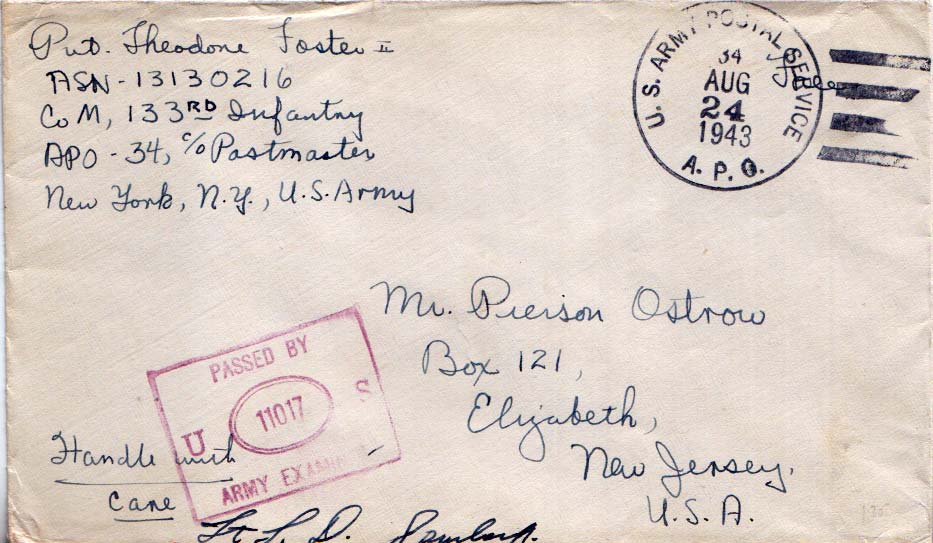 Pvt. Theodore Foster II
ASN-13130216
Co M, 133RD Infantry
APO-34, c/o Postmaster
New York, N.Y., U.S. Army
U.S. ARMY POSTAL SERVICE
34
AUG
24
1943
A.P.O.
Free
Mr. Pierson Ostrow
Box 121,
Elizabeth,
New Jersey.
U.S.A.
PASSED BY
U 11017 S
ARMY EXAMINER
Handle with
care
Lt L. D.